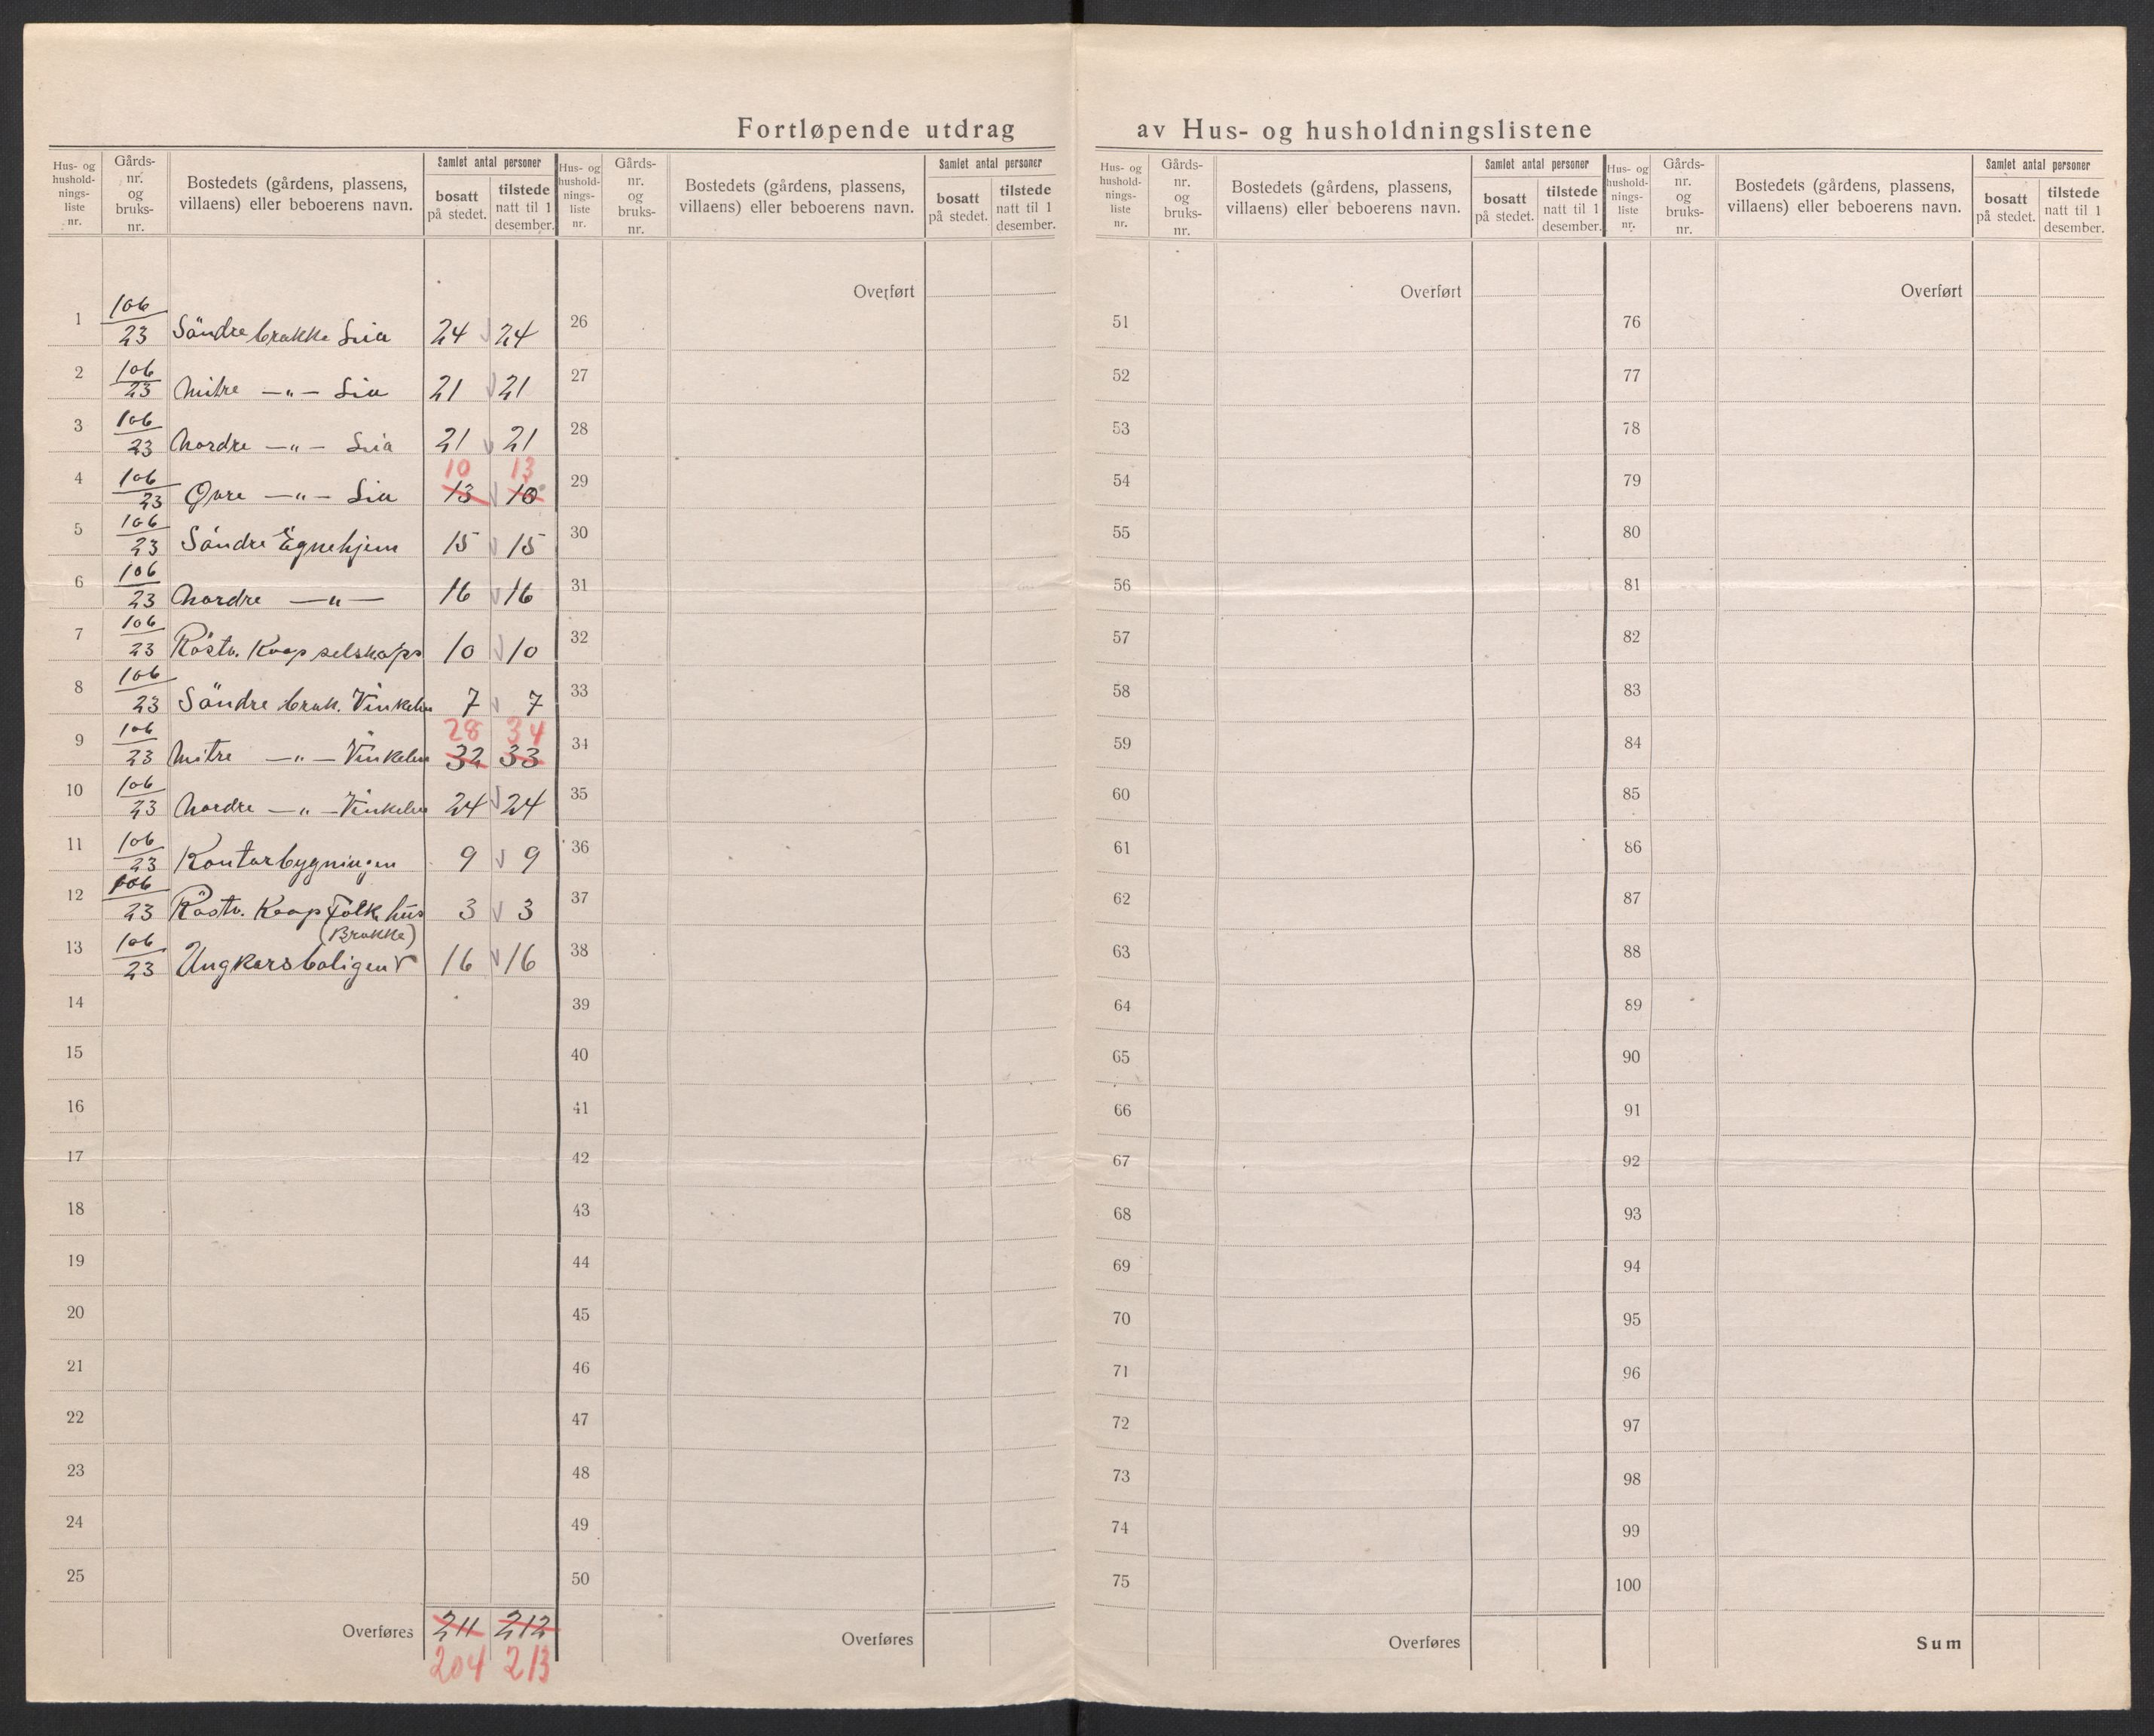 Fortløpende utdrag av Hus- og husholdningslistene
Hus- og hushold-nings-liste nr. Gårds-nr. og bruks-nr. Bostedets (gårdens, plassens, villaens) eller beboerens navn. Samlet antal personer bosatt på stedet. tilstede natt til 1 desember.
Hus- og hushold-nings-liste nr. Gårds-nr. og bruks-nr. Bostedets (gårdens, plassens, villaens) eller beboerens navn. Samlet antal personer bosatt på stedet. tilstede natt til 1 desember.
Hus- og hushold-nings-liste nr. Gårds-nr. og bruks-nr. Bostedets (gårdens, plassens, villaens) eller beboerens navn. Samlet antal personer bosatt på stedet. tilstede natt til 1 desember.
Hus- og hushold-nings-liste nr. Gårds-nr. og bruks-nr. Bostedets (gårdens, plassens, villaens) eller beboerens navn. Samlet antal personer bosatt på stedet. tilstede natt til 1 desember.
1 106/23 Söndre brakke Lia 24 24
2 106/23 Mitre —„— Lia 21 21
3 106/23 Nordre —„— Lia 21 21
10 13
4 106/23 Øvre —„— Lia 13 10
5 106/23 Söndre Egnehjem 15 15
6 106/23 Nordre —„— 16 16
7 106/23 Röstv. Koop selskaps 10 10
8 106/23 Söndre brak. Vinkelen 7 7
28 34
9 106/23 Mitre —„— Vinkelen 32 33
10 106/23 Nordre —„— Vinkelen 24 24
11 106/23 Kontorbygningen 9 9
12 106/23 Röstv. Koop Folk hus 3 3
(Brakke)
13 106/23 Ungkarsboligen 16 16
14
15
16
17
18
19
20
21
22
23
24
25
Overføres 211 212
204 213
Overført
26
27
28
29
30
31
32
33
34
35
36
37
38
39
40
41
42
43
44
45
46
47
48
49
50
Overføres
Overført
51
52
53
54
55
56
57
58
59
60
61
62
63
64
65
66
67
68
69
70
71
72
73
74
75
Overføres
Overført
76
77
78
79
80
81
82
83
84
85
86
87
88
89
90
91
92
93
94
95
96
97
98
99
100
Sum